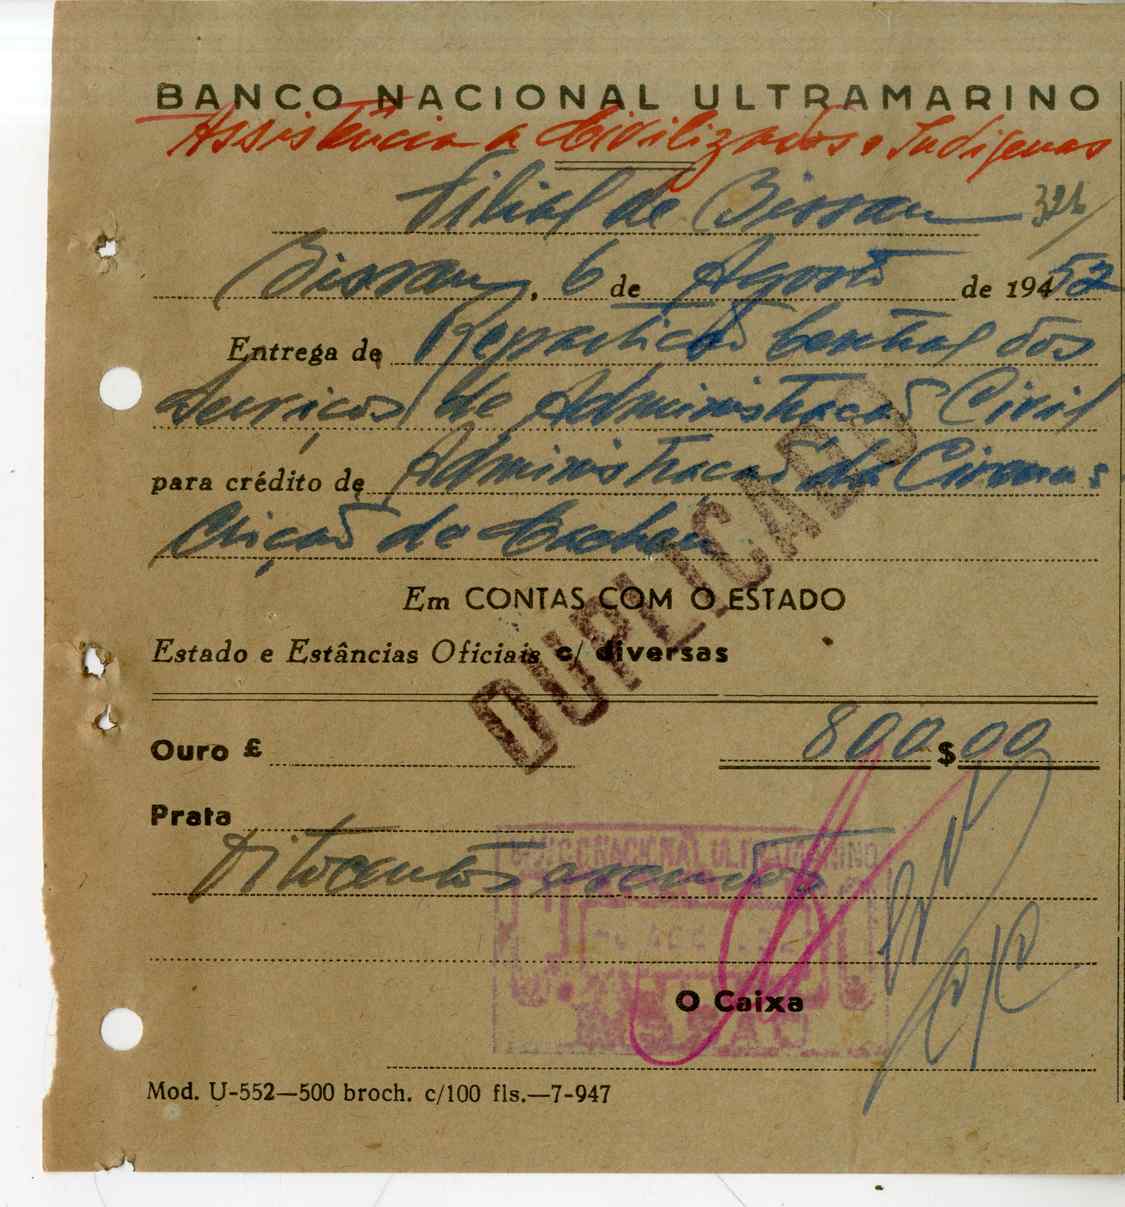 BANCO NACIONAL ULTRAMARINO
Assistência a Civilizados e Indígenas
Filial de Bissau 326
Bissau, 6 de Agosto de 19452
Entrega de Repartição Central dos
Serviços de Administração Civil
para crédito de Administração da Circuns
crição de Cacheu
DUPLICADO
Em CONTAS COM O ESTADO
Estado e Estâncias Oficiais c/ diversas
Ouro £ 800$00
Prata
Oitocentos escudos
BANCO NACIONAL ULTRAMARINO
O Caixa
Mod. U-552—500 broch. c/100 fls.—7-947